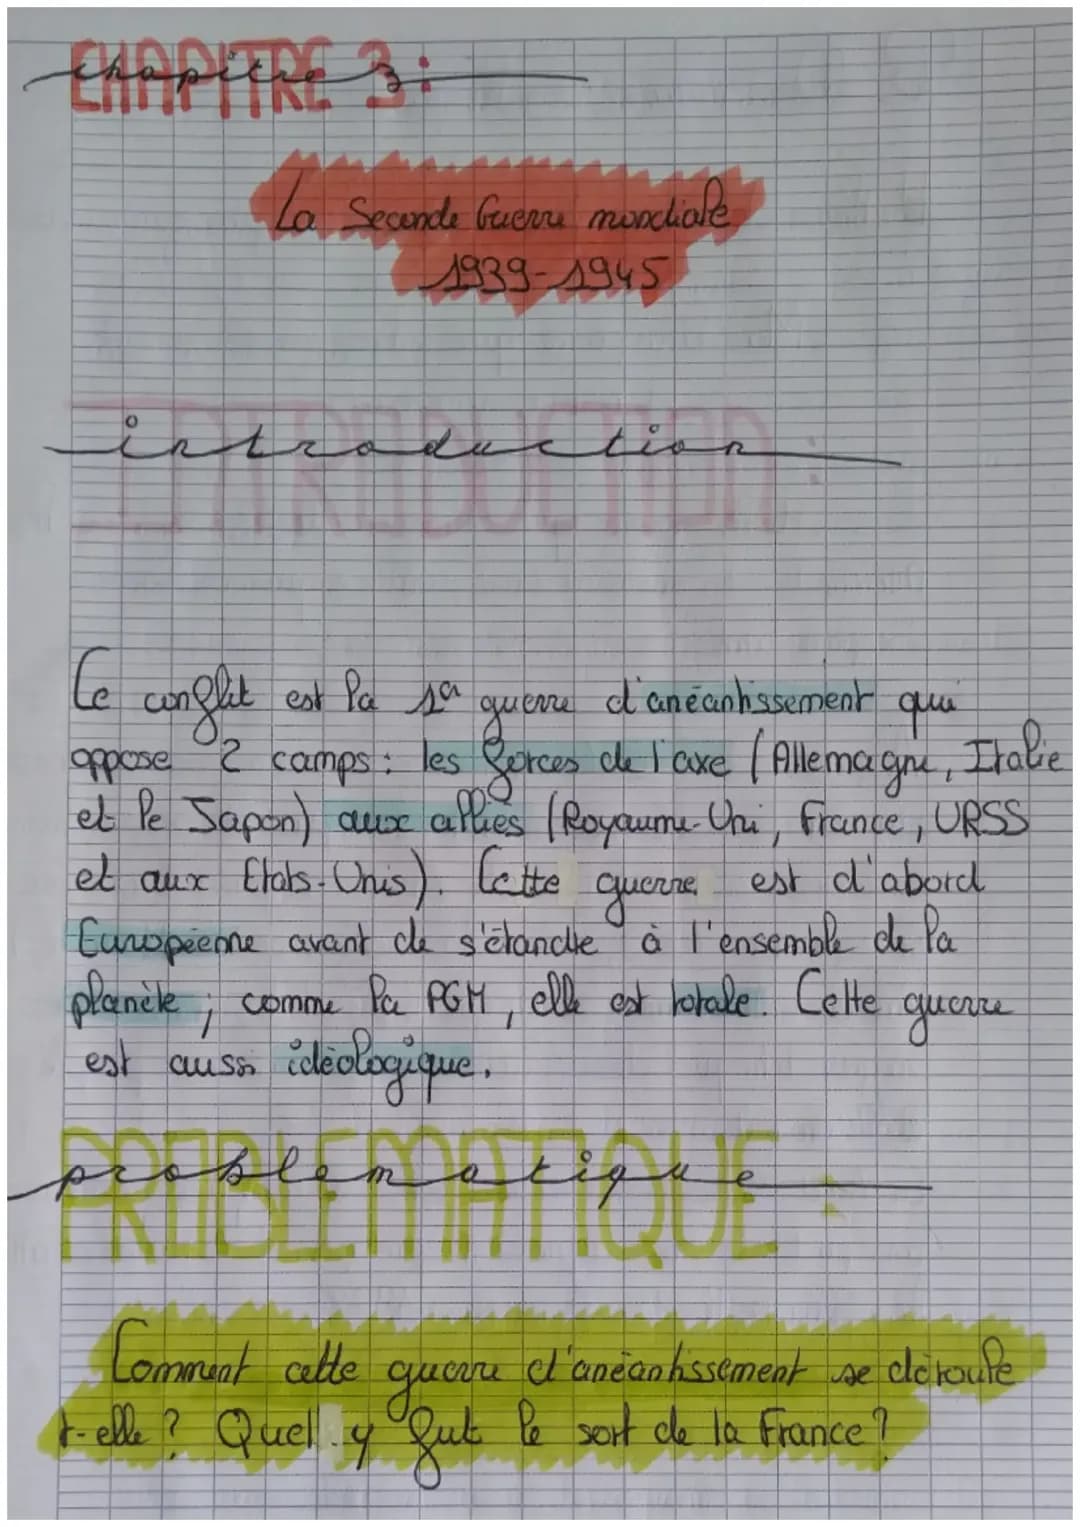 CHAPITRE 3:
chapitre 3:
La Seconde Guerre mondiale
1939-1945
INTRODUCTION :
introduction
Ce conflit est la 1ère guerre d'anéantissement qui
oppose 2 camps: les forces de l'axe (Allemagne, Italie
et le Japon) aux alliés (Royaume-Uni, France, URSS
et aux Etats-Unis). Cette guerre est d'abord
Européenne avant de s'étandre à l'ensemble de la
planète ; comme la PGM, elle est totale. Cette guerre
est aussi idéologique.
PROBLEMATIQUE :
problematique
Comment cette guerre d'anéantissement se déroule
t-elle ? Quell y fut le sort de la France ?